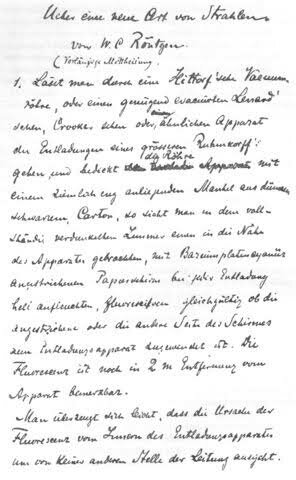 Ueber eine neue Art von Strahlen
von W. C. Röntgen.
(Vorläufige Mittheilung.
1. Lässt man durch eine Hittorf'sche Vacuum-
röhre, oder einen genügend evacuirten Lenard'
schen, Crookes'schen oder einen ähnlichen Apparat
die Entladungen eines grösseren Ruhmkorff's
gehen und bedeckt die Röhre mit
einem ziemlich eng anliegenden Mantel aus dünnem
schwarzem, Carton, so sieht man in dem voll-
ständig verdunkelten Zimmer einen in die Nähe
des Apparates gebrachten, mit Bariumplatincyanür
angestrichenen Papierschirm bei jeder Entladung
hell aufleuchten, fluoresciren gleichgültig ob die
angestrichene oder die andere Seite des Schirmes
dem Entladungsapparat zugewendet ist. Die
Fluorescenz ist noch in 2 m Entfernung vom
Apparat bemerkbar.
Man überzeugt sich leicht, dass die Ursache der
Fluorescenz vom Innern des Entladungsapparates
und von keiner anderen Stelle der Leitung ausgeht.